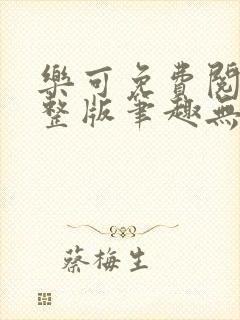 樂可免費閱
整版筆趣無
蔡梅生